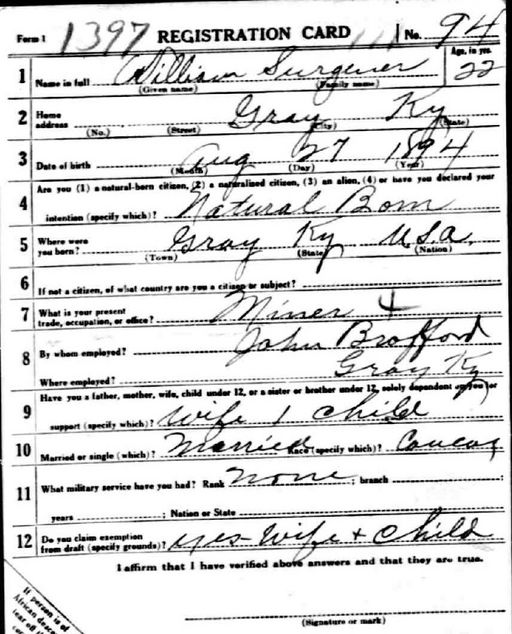 Form 1 1397 REGISTRATION CARD No. 94
1 Name in full William Surgener Age, in yrs. 22
(Given name) (Family name)
2 Home address Gray Ky
(No.) (Street) (City) (State)
3 Date of birth Aug 27 1894
(Month) (Day) (Year)
4 Are you (1) a natural-born citizen, (2) a naturalized citizen, (3) an alien, (4) or have you declared your
intention (specify which)? Natural Born
5 Where were you born? Gray Ky U.S.A.
(Town) (State) (Nation)
6 If not a citizen, of what country are you a citizen or subject?
7 What is your present trade, occupation, or office? Miner
8 By whom employed? John Brofford
Where employed? Gray Ky
9 Have you a father, mother, wife, child under 12, or a sister or brother under 12, solely dependent on you for
support (specify which)? Wife 1 child
10 Married or single (which)? Married Race (specify which)?
11 What military service have you had? Rank None ; branch
years ; Nation or State
12 Do you claim exemption from draft (specify grounds)? yes-Wife + Child
I affirm that I have verified above answers and that they are true.
(Signature or mark)
If person is of
African
tear off